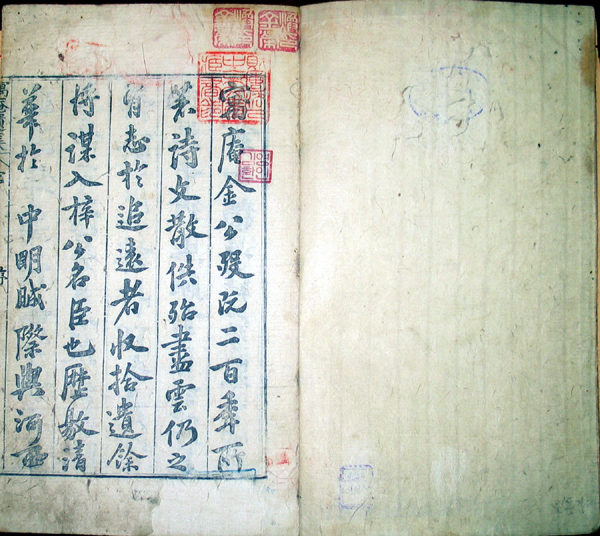 寓庵金公歿既二百年所
著詩文散佚殆盡雲仍之
有志於追遠者收拾遺餘
將謀入梓公名臣也歷敭清
華於 中明晠際與河西